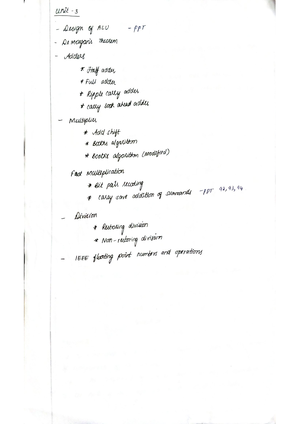 Unit - 3
- Design of ALU - PPT
- De Morgan's theorem
- Adders
* Half adder
* Full adder
* Ripple carry adder
* carry look ahead adder
- Multiplier
* Add shift
* Booths algorithm
* Booths algorithm (modified)
Fast Multiplication
* Bit pair recoding
* carry save addition of summands - PPT 92, 93, 94
- Division
* Restoring division
* Non-restoring division
- IEEE floating point numbers and operations